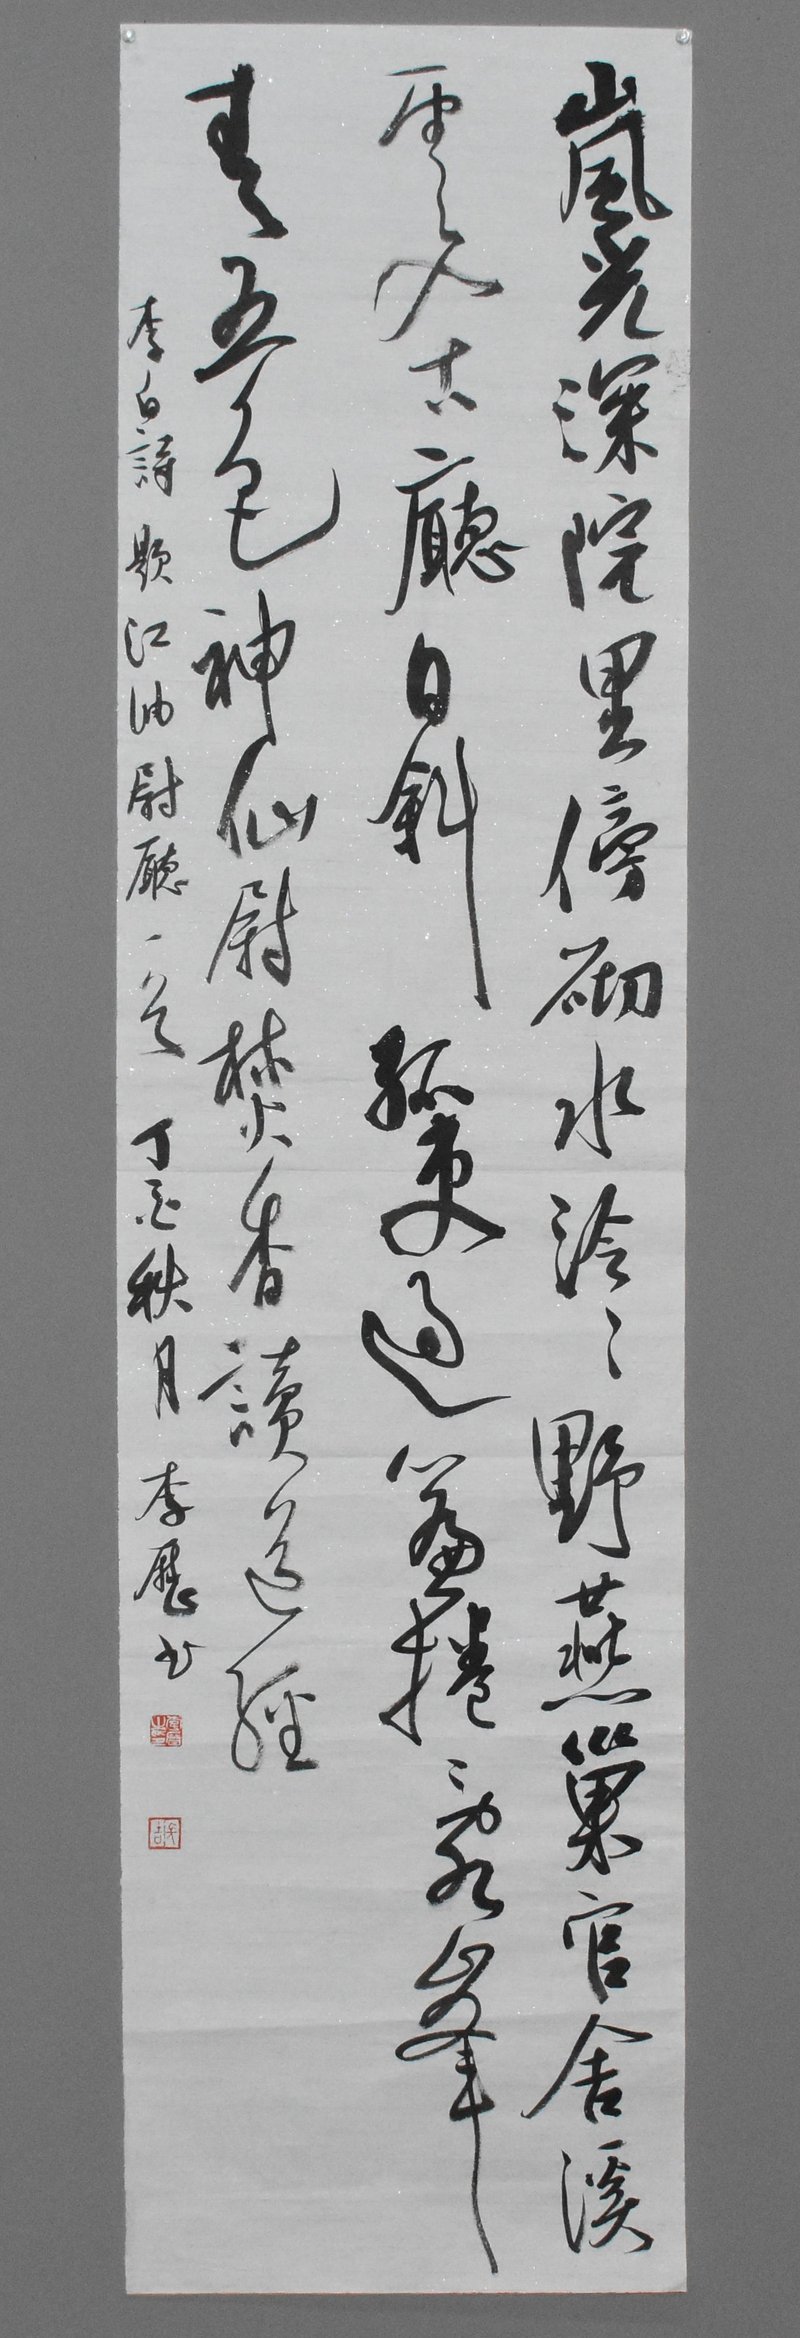 嵐光深院里傍砌水泠〻野燕巢官舍溪
雲入古廳日斜孤吏過簾捲亂峰
青五色神仙尉焚香讀道經
李白詩題江油尉廳一首 丁酉秋月 李歷書